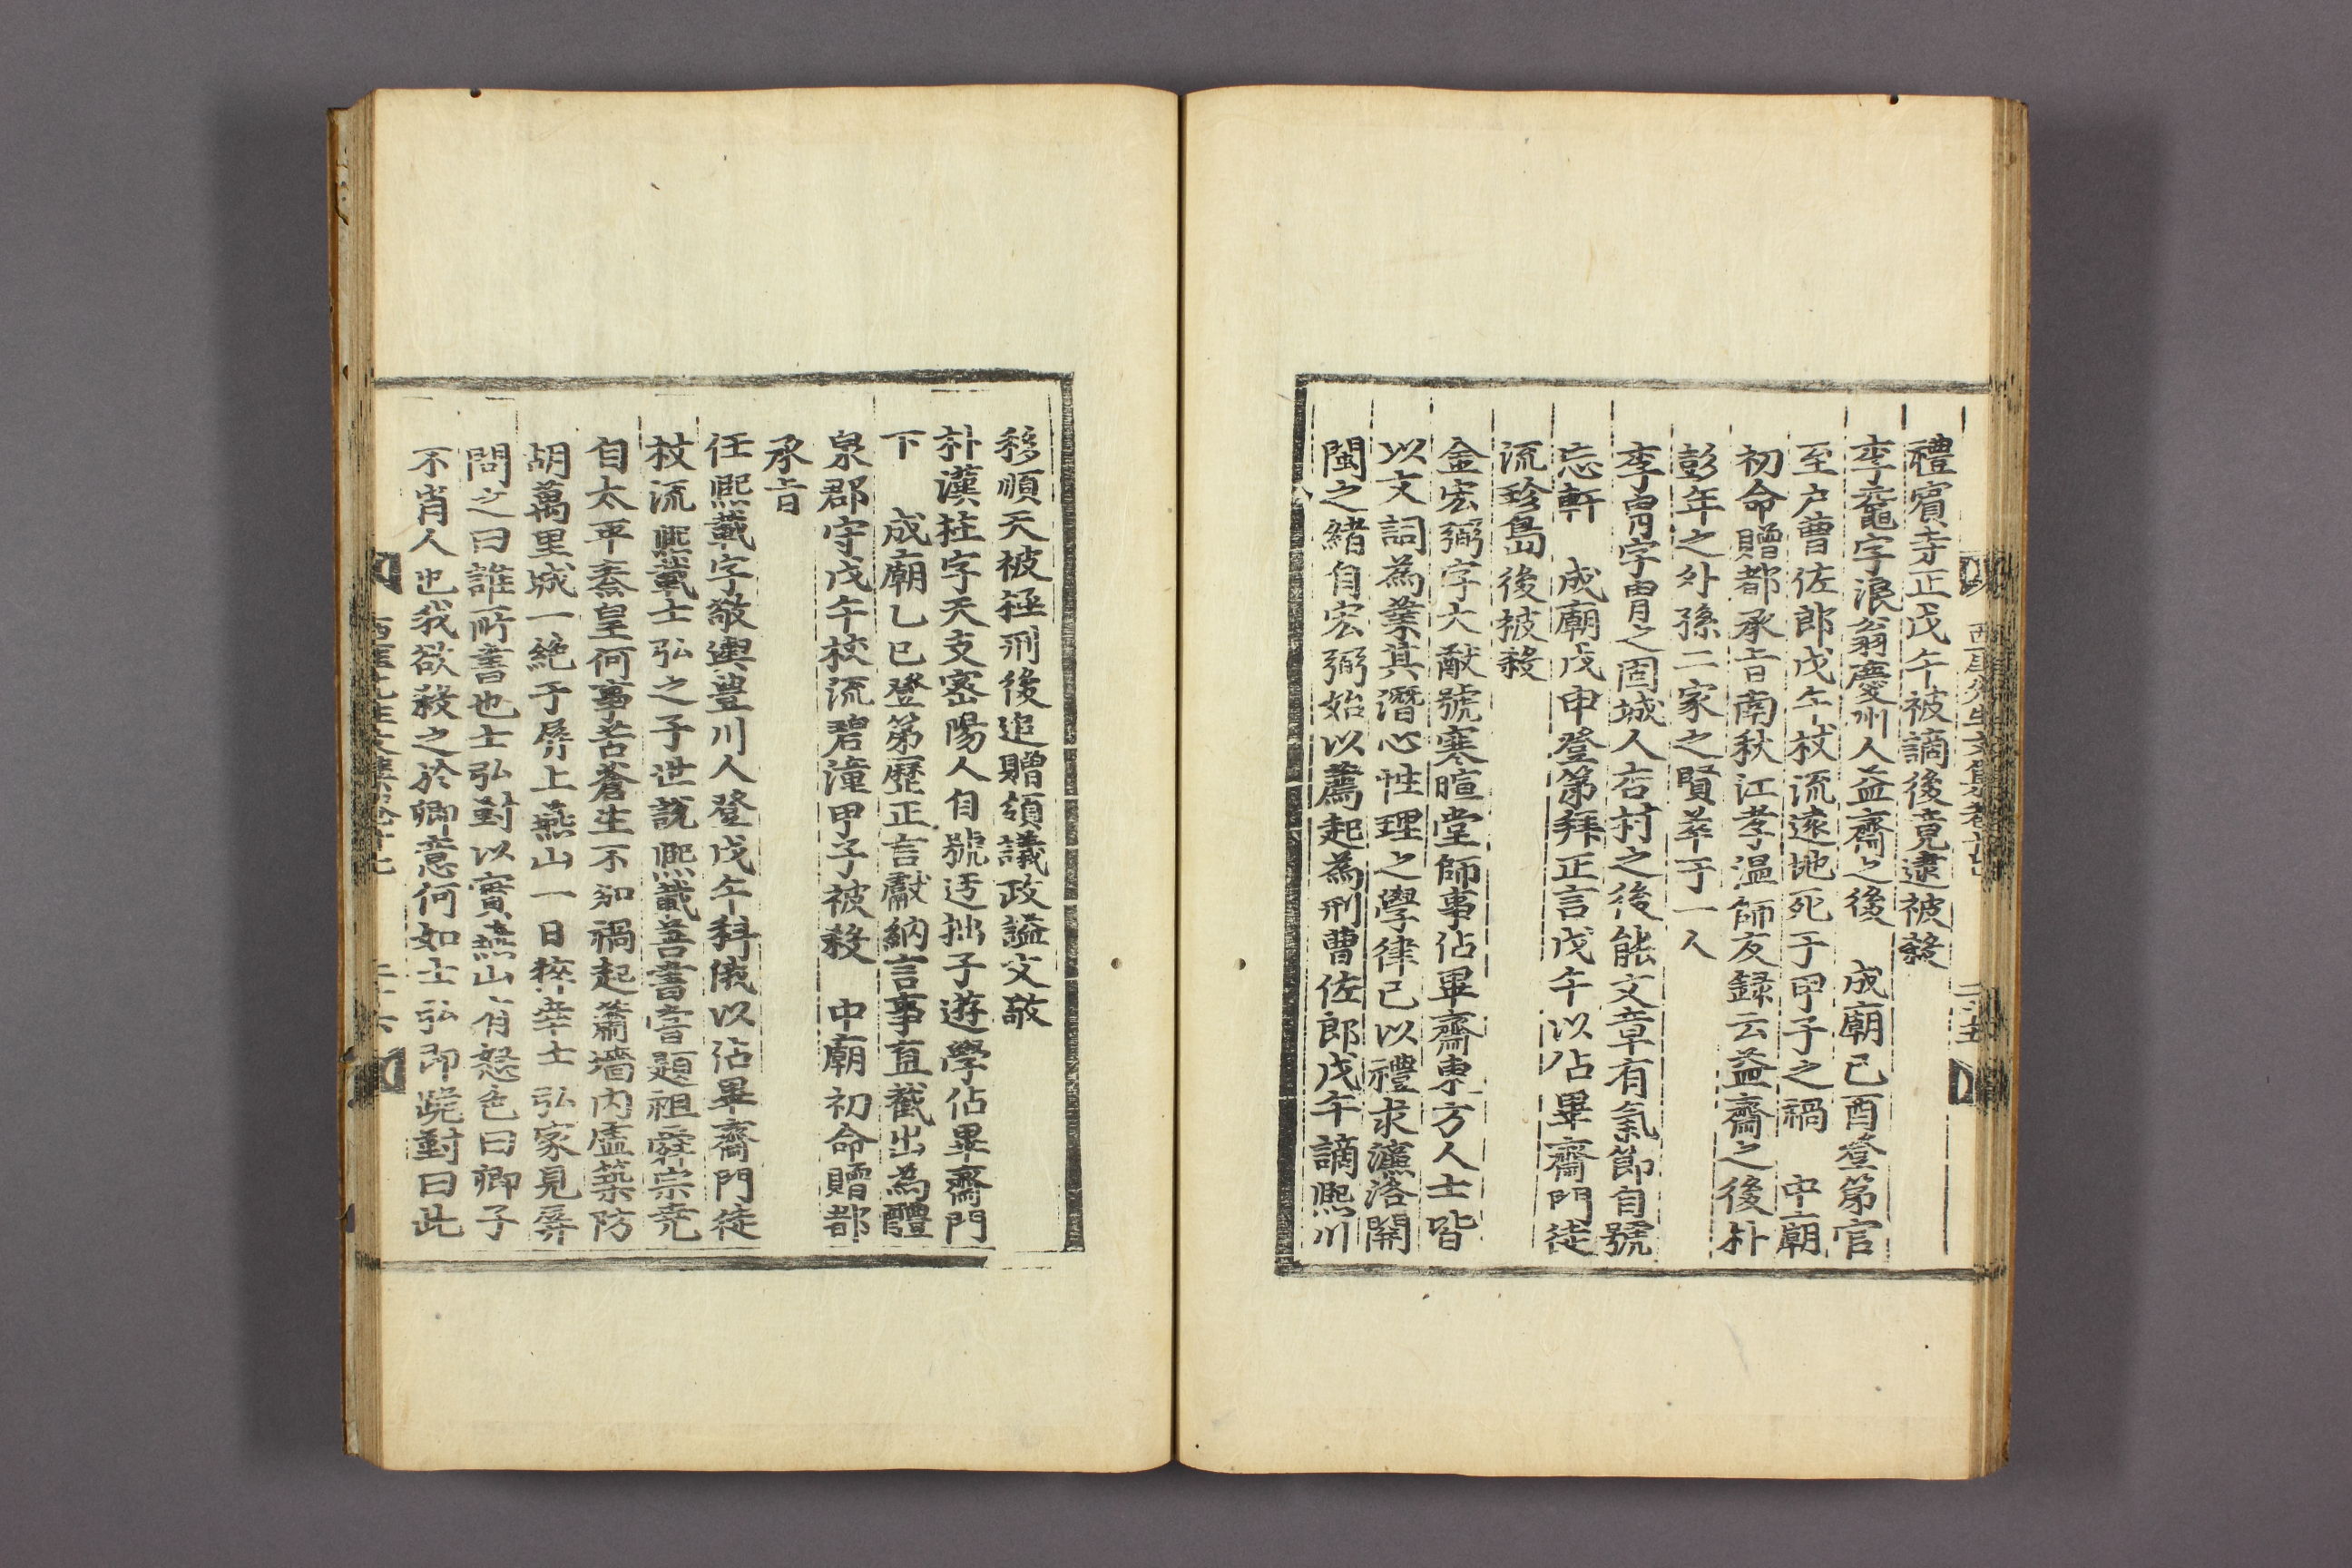 禮賓寺正戊午被謫後竟逮被殺
李黿字浪翁慶州人益齋之後　成廟己酉登第官
至户曹佐郎戊午杖流遠地死于甲子之禍　中廟
初命贈都承旨南秋江孝温師友録云益齋之後朴
彭年之外孫二家之賢萃于一人
李胄字胄之固城人杏村之後能文章有氣節自號
忘軒　成廟戊申登第拜正言戊午以佔畢齋門徒
流珍島後被殺
金宏弼字大猷號寒暄堂師事佔畢齋東方人士皆
以文詞為業其潛心性理之學律己以禮求濂洛關
閩之緒自宏弼始以薦起為刑曹佐郎戊午謫熙川
移順天被極刑後追贈領議政謚文敬
朴漢柱字天支密陽人自號迂拙子遊學佔畢齋門
下　成廟乙巳登第歷正言獻納言事直截出為醴
泉郡守戊午杖流碧潼甲子被殺　中廟初命贈都
承旨
任熙載字敬輿豊川人登戊午科俄以佔畢齋門徒
杖流熙載士弘之子世說熙載善書嘗題祖舜宗堯
自太平秦皇何事苦蒼生不知禍起蕭墻内虛築防
胡萬里城一絶于屏上燕山一日猝幸士弘家見屏
問之曰誰所書也士弘對以實燕山有怒色曰卿子
不肖人也我欲殺之於卿意何如士弘即跪對曰此